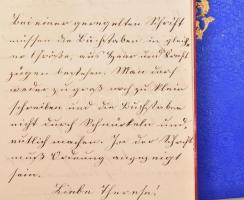 bei einer geregelten Schrift
müssen die Buchstaben in gleich-
er Größe, aus Haar und Kraft
zügen bestehen. Man darf
weder zu groß noch zu klein
schreiben und die Buchstaben
nicht durch Schnörkeln und,
eutlich machen. In der Schrift
muß Ordnung angezeigt
sein.
Liebe Therese!